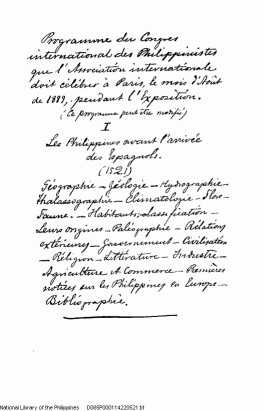 Programme du Congres
international des Philippinistes
que l'Association internationale
doit célébrer à Paris, le mois d'Août
de 1889, pendant l'Exposition.
(Ce programme peut être modifié)
I
Les Philippines avant l'arrivée
des Espagnols.
(1521)
Géographie — Géologie — Hydrographie —
Thalassographie — Climatologie — Flore —
Faune. — Habitants, classification —
Leurs origines — Paléographie — Relations
extérieures — Gouvernement — Civilisation
— Réligion — Littérature — Industrie —
Agriculture & Commerce — Premières
notices sur les Philippines en Europe —
Bibliographie.
National Library of the Philippines DG85P000114220521.tif